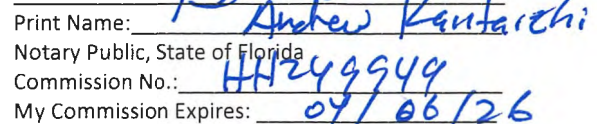 Print Name: Andrew Kantarzhi
Notary Public, State of Florida
Commission No.: HH249949
My Commission Expires: 04/06/26